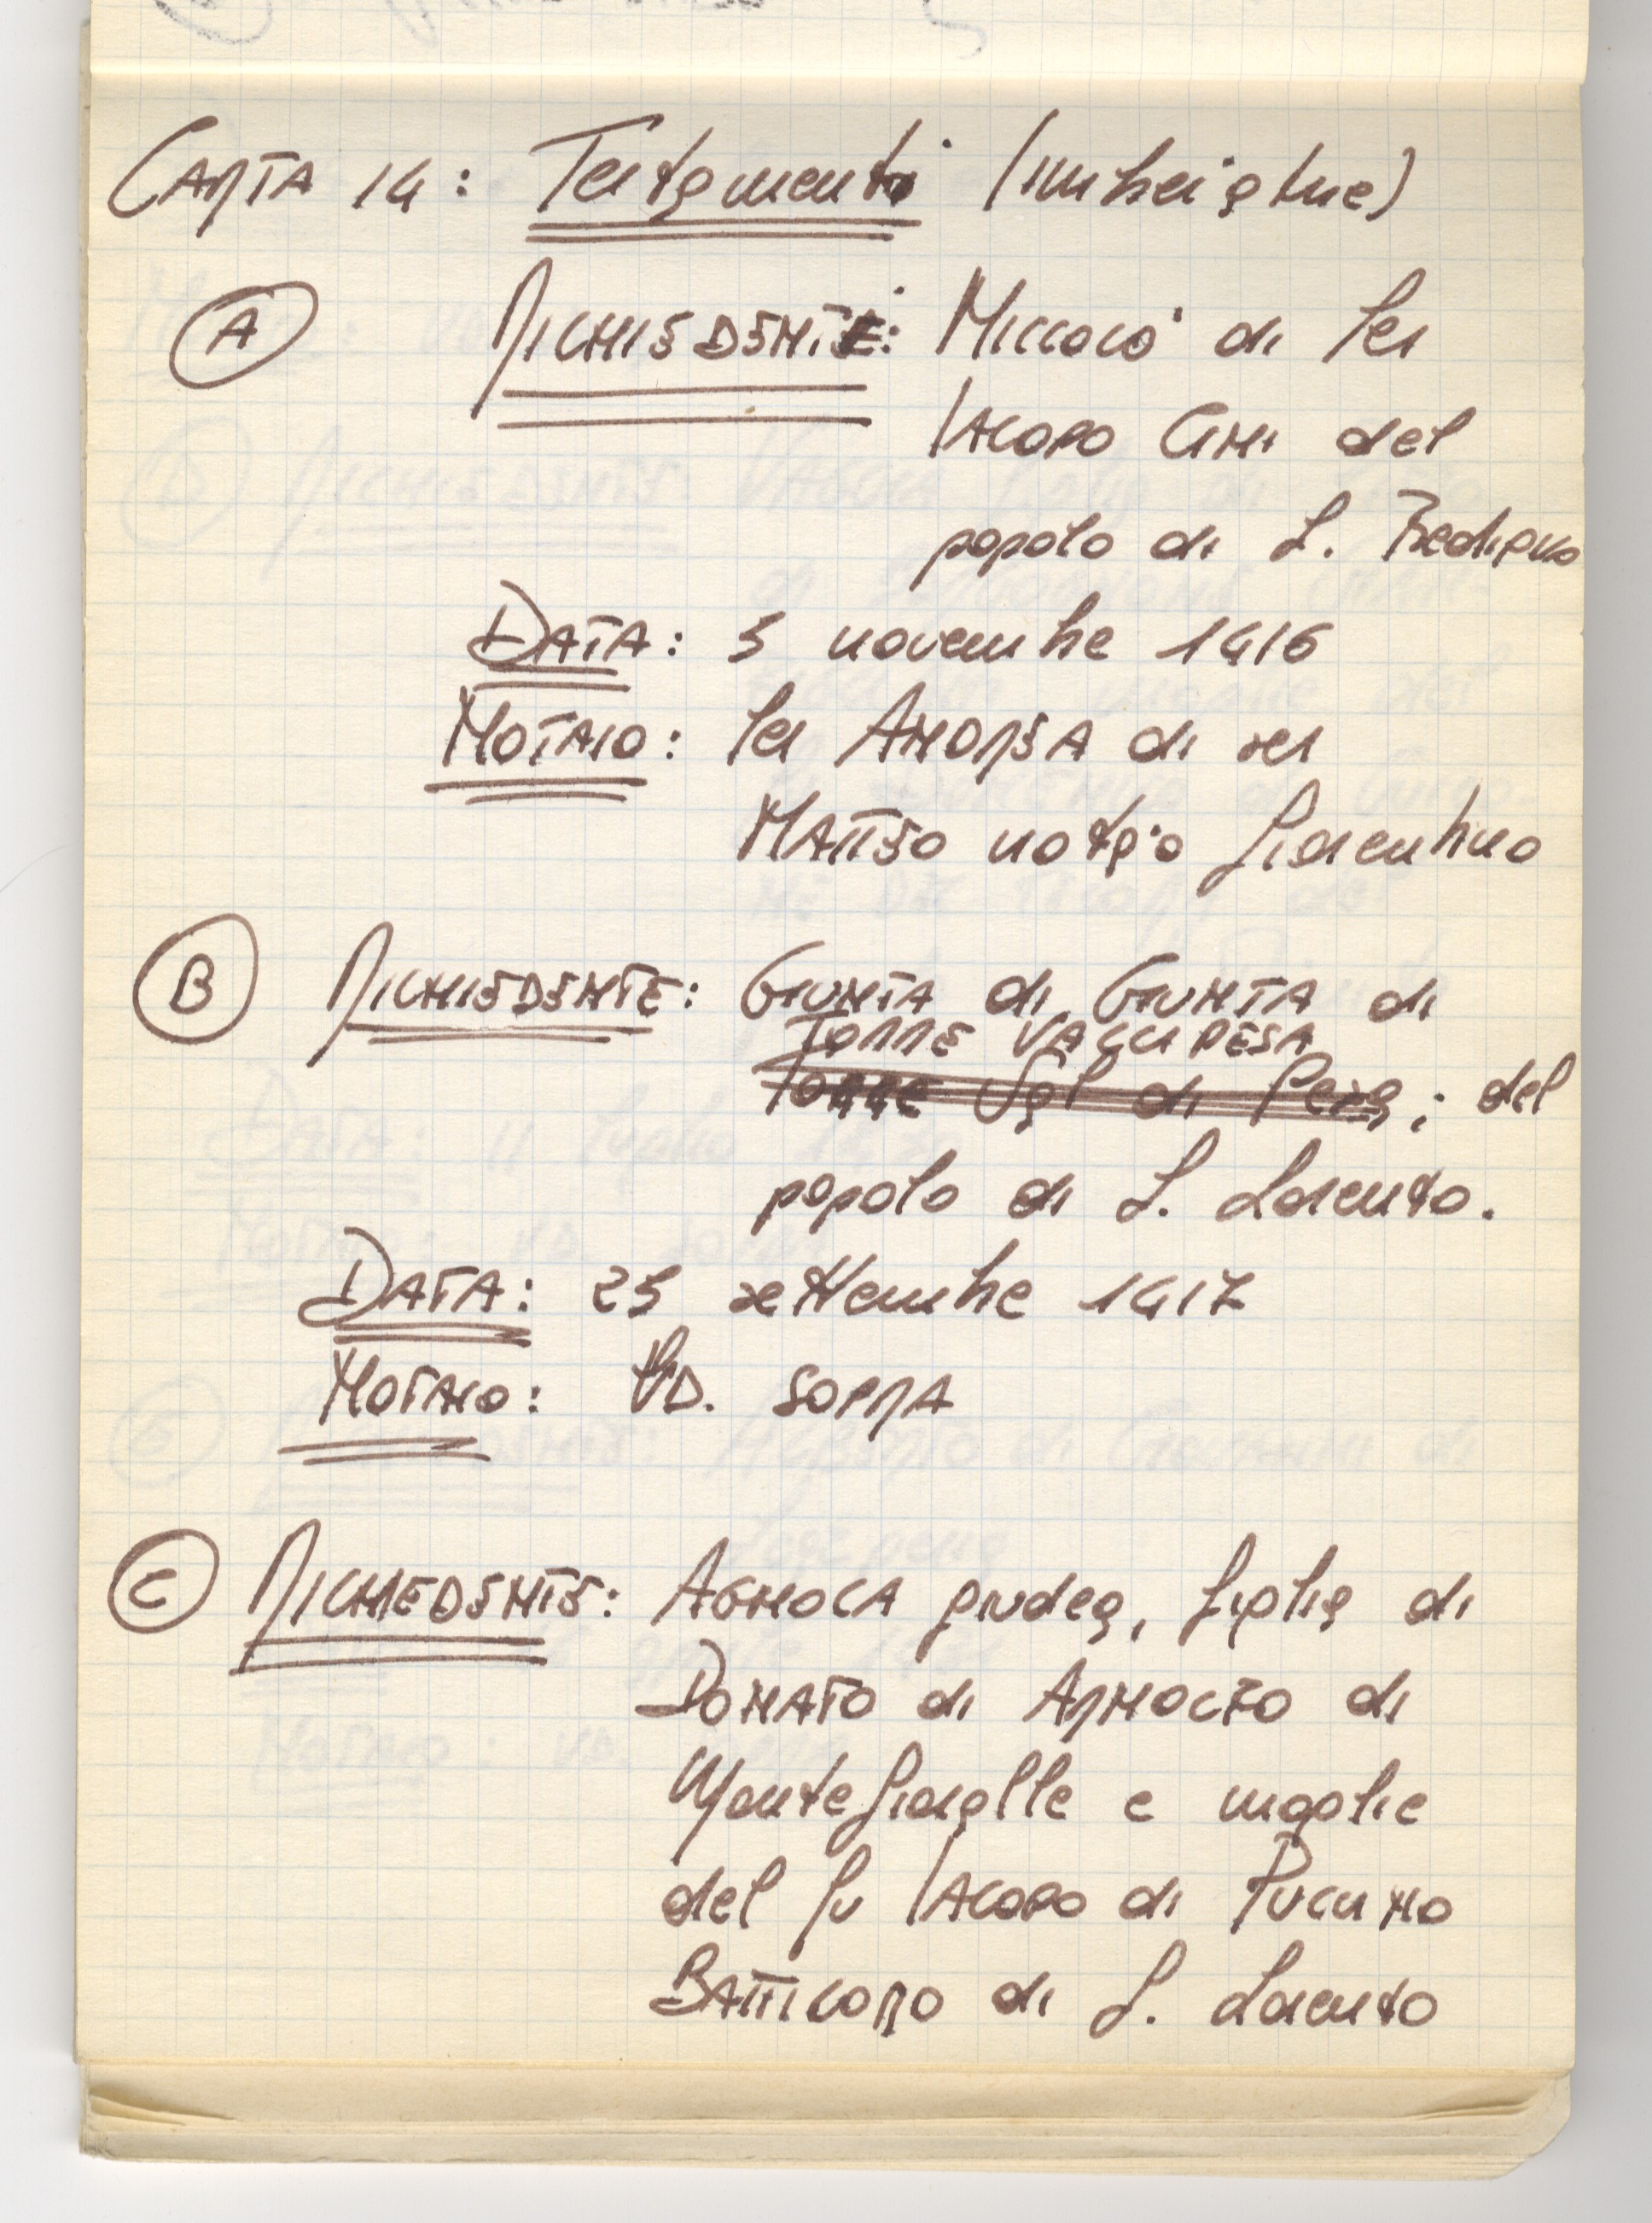 CARTA 14: Testamenti (imbreviature)
A RICHIEDENTE: NICCOLO' di Ser
IACOPO CINI del
popolo di S. Frediano
DATA: 5 novembre 1416
NOTAIO: Ser ANDREA di ser
MATTEO notaio fiorentino
B RICHIEDENTE: GIUNTA di GIUNTA di
TORRE VALLI PESA
Torre Val di Pesa; del
popolo di S. Lorenzo.
DATA: 25 settembre 1417
NOTAIO: VD. SOPRA
C RICHIEDENTE: AGNOLA giudea, figlia di
DONATO di ARNOLFO di
Montefioralle e moglie
del fu IACOPO di PUCCINO
BATTILORO di S. Lorenzo